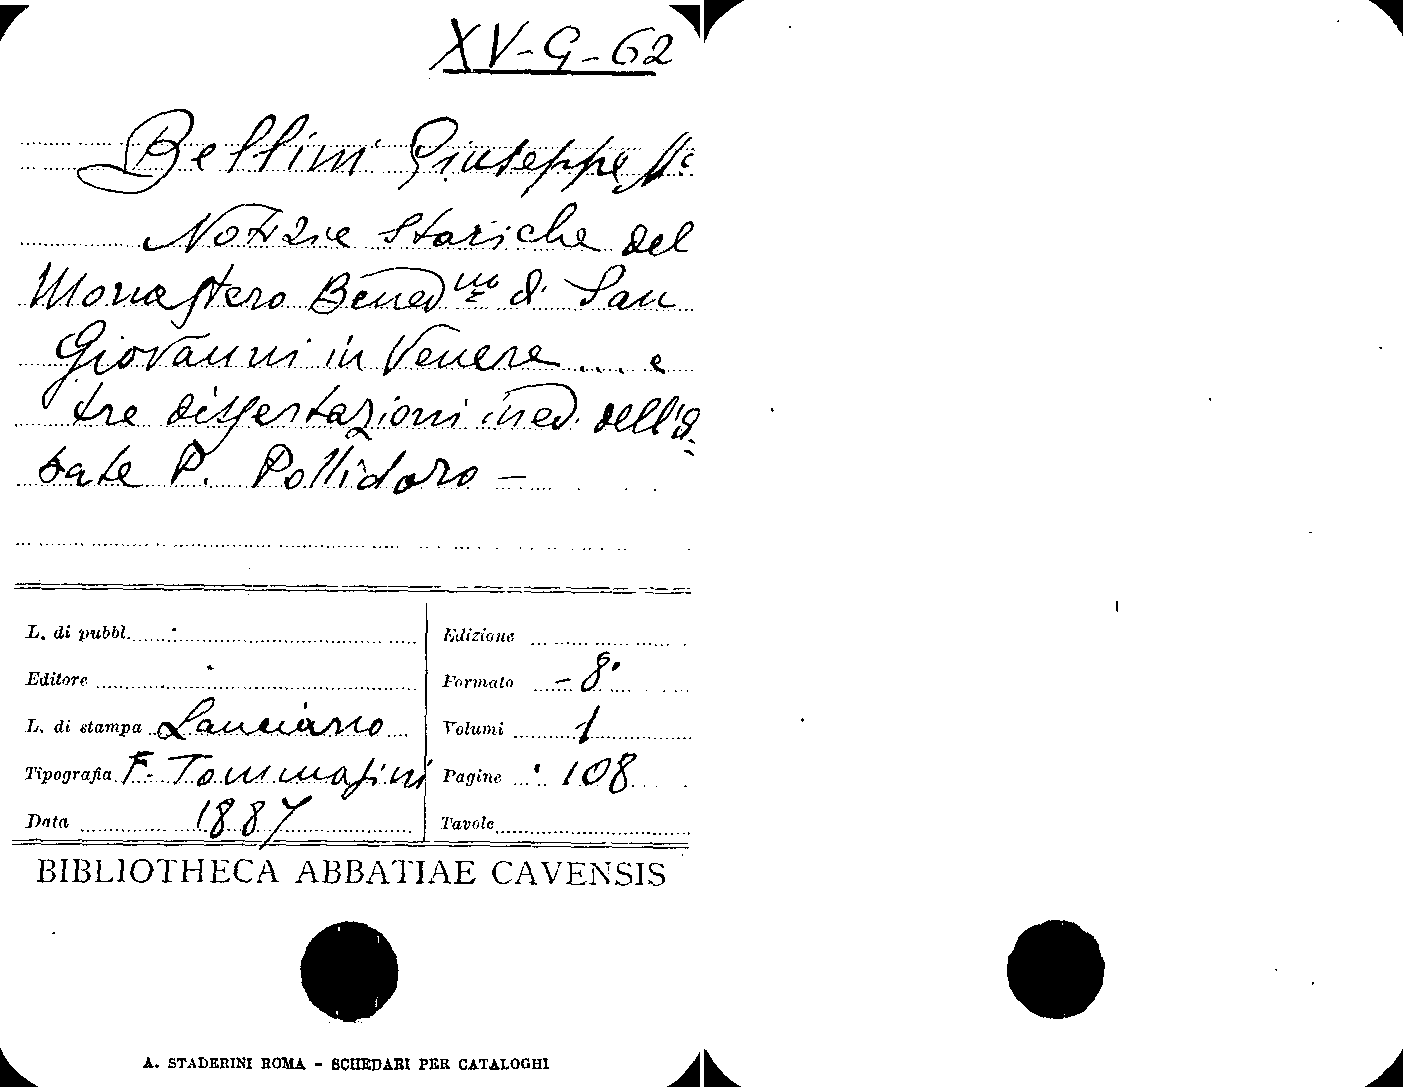 XV-G-62
Bellini Giuseppe Mª
Notizie storiche del
Monastero Bened.no di San
Giovanni in Venere .... e
tre dissertazioni ined. dell'a-
bate P. Pollidoro -
L. di pubbl.
Edizione
Editore
Formato - 8°
L. di stampa Lanciano
Volumi 1
Tipografia F. Tommasini
Pagine 108
Data 1887
Tavole
BIBLIOTHECA ABBATIAE CAVENSIS
A. STADERINI ROMA - SCHEDARI PER CATALOGHI